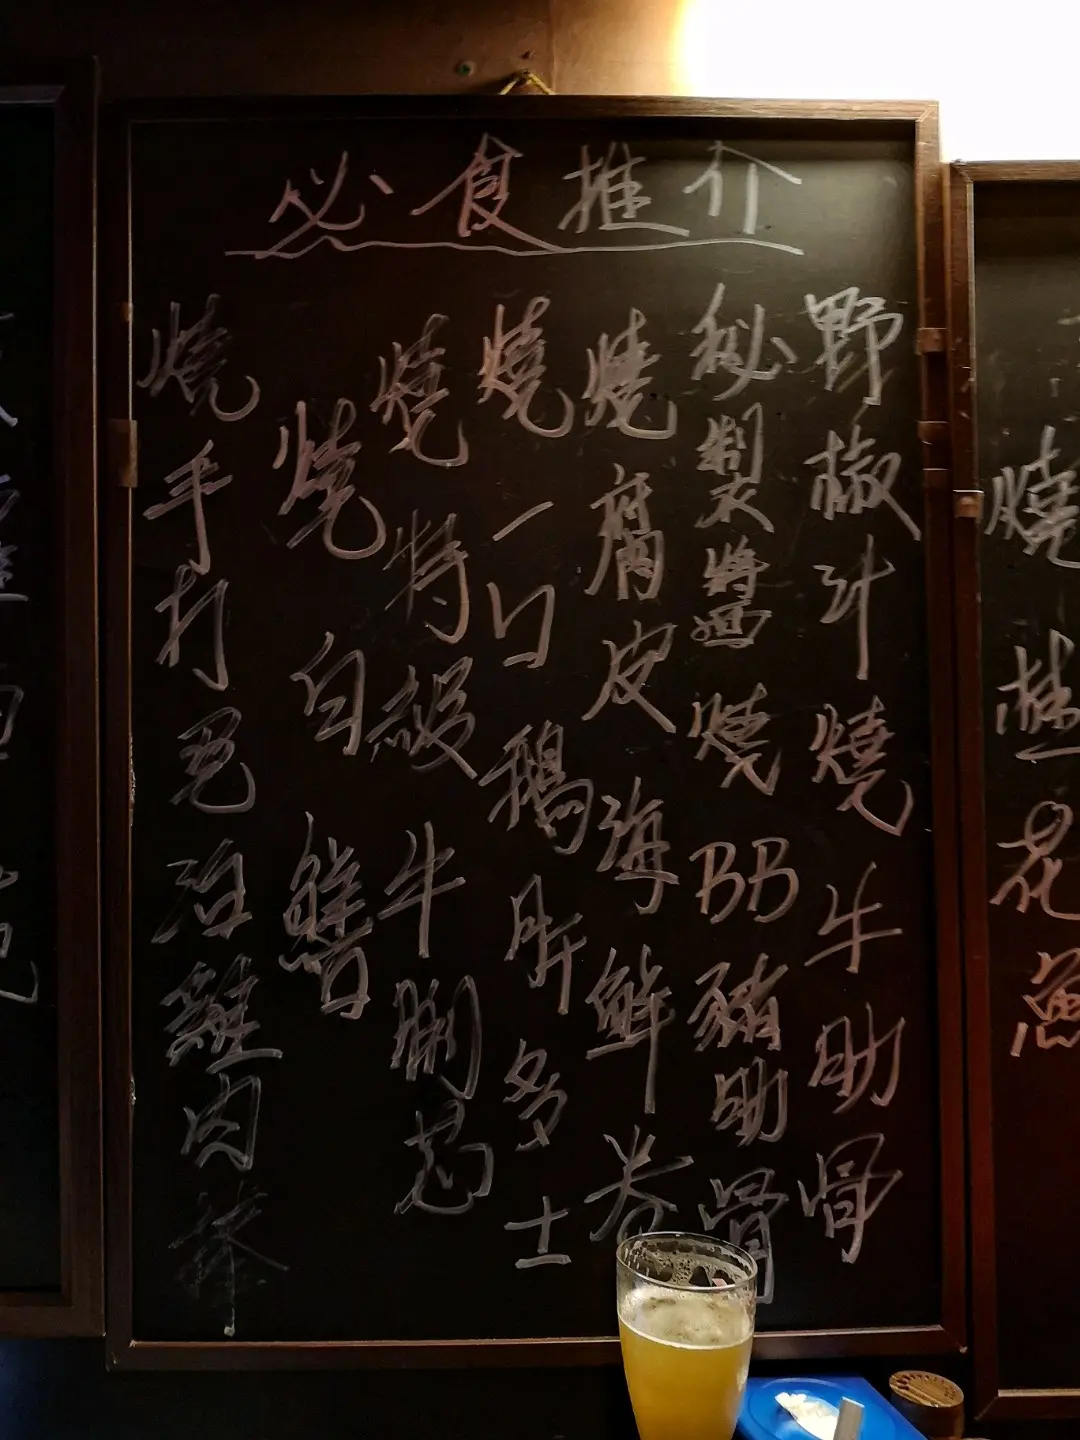 必食推介
野椒汁燒牛肋骨
秘製醬燒BB豬肋骨
燒腐皮海鮮卷
燒一口鵝肝多士
燒特級牛脷芯
燒白鱔
燒手打免治雞肉棒
燒桂花魚